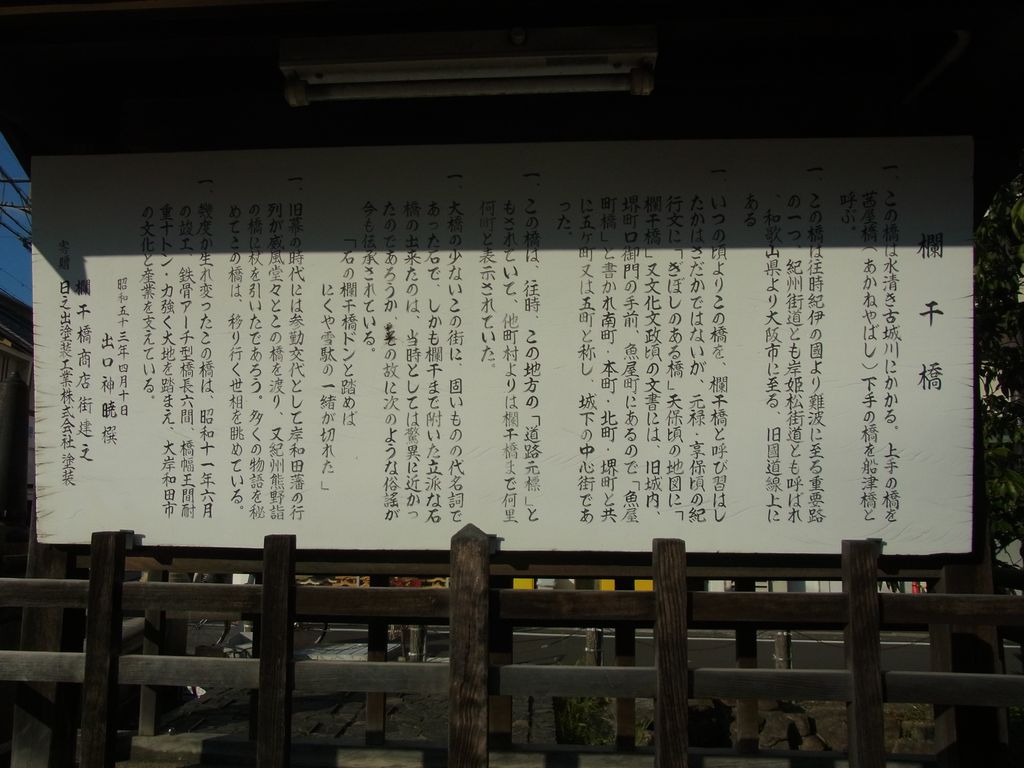 欄干橋
一、この橋は水清き古城川にかかる。上手の橋を
茜屋橋（あかねやばし）下手の橋を船津橋と
呼ぶ。
一、この橋は往時紀伊の國より難波に至る重要路
の一つ、紀州街道とも岸姫松街道とも呼ばれ
、和歌山県より大阪市に至る、旧國道線上に
ある
一、いつの頃よりこの橋を、欄干橋と呼び習はし
たかはさだかではないが、元禄・享保頃の紀
行文に「ぎぼしのある橋」天保頃の地図に「
欄干橋」又文化文政頃の文書には、旧城内、
堺町口御門の手前、魚屋町にあるので「魚屋
町橋」と書かれ南町・本町・北町・堺町と共
に五ケ町又は五町と称し、城下の中心街であ
った。
一、この橋は、往時、この地方の「道路元標」と
もされていて、他町村よりは欄干橋まで何里
何町と表示されていた。
一、大橋の少ないこの街に、固いものの代名詞で
あった石で、しかも欄干まで附いた立派な石
橋の出来たのは、当時としては驚異に近かっ
たのであろうか、その故に次のような俗謡が
今も伝承されている。
「石の欄干橋ドンと踏めば
にくや雪駄の一緒が切れた」
一、旧幕の時代には参勤交代として岸和田藩の行
列が威風堂々とこの橋を渡り、又紀州熊野詣
の橋に杖を引いたであろう。多くの物語を秘
めてこの橋は、移り行く世相を眺めている。
一、幾度か生れ変ったこの橋は、昭和十一年六月
の竣工、鉄骨アーチ型橋長六間、橋幅五間耐
重十トン・力強く大地を踏まえ、大岸和田市
の文化と産業を支えている。
昭和五十三年四月十日
出口神暁 撰
欄干橋商店街建之
寄贈 日之出塗装工業株式会社塗装